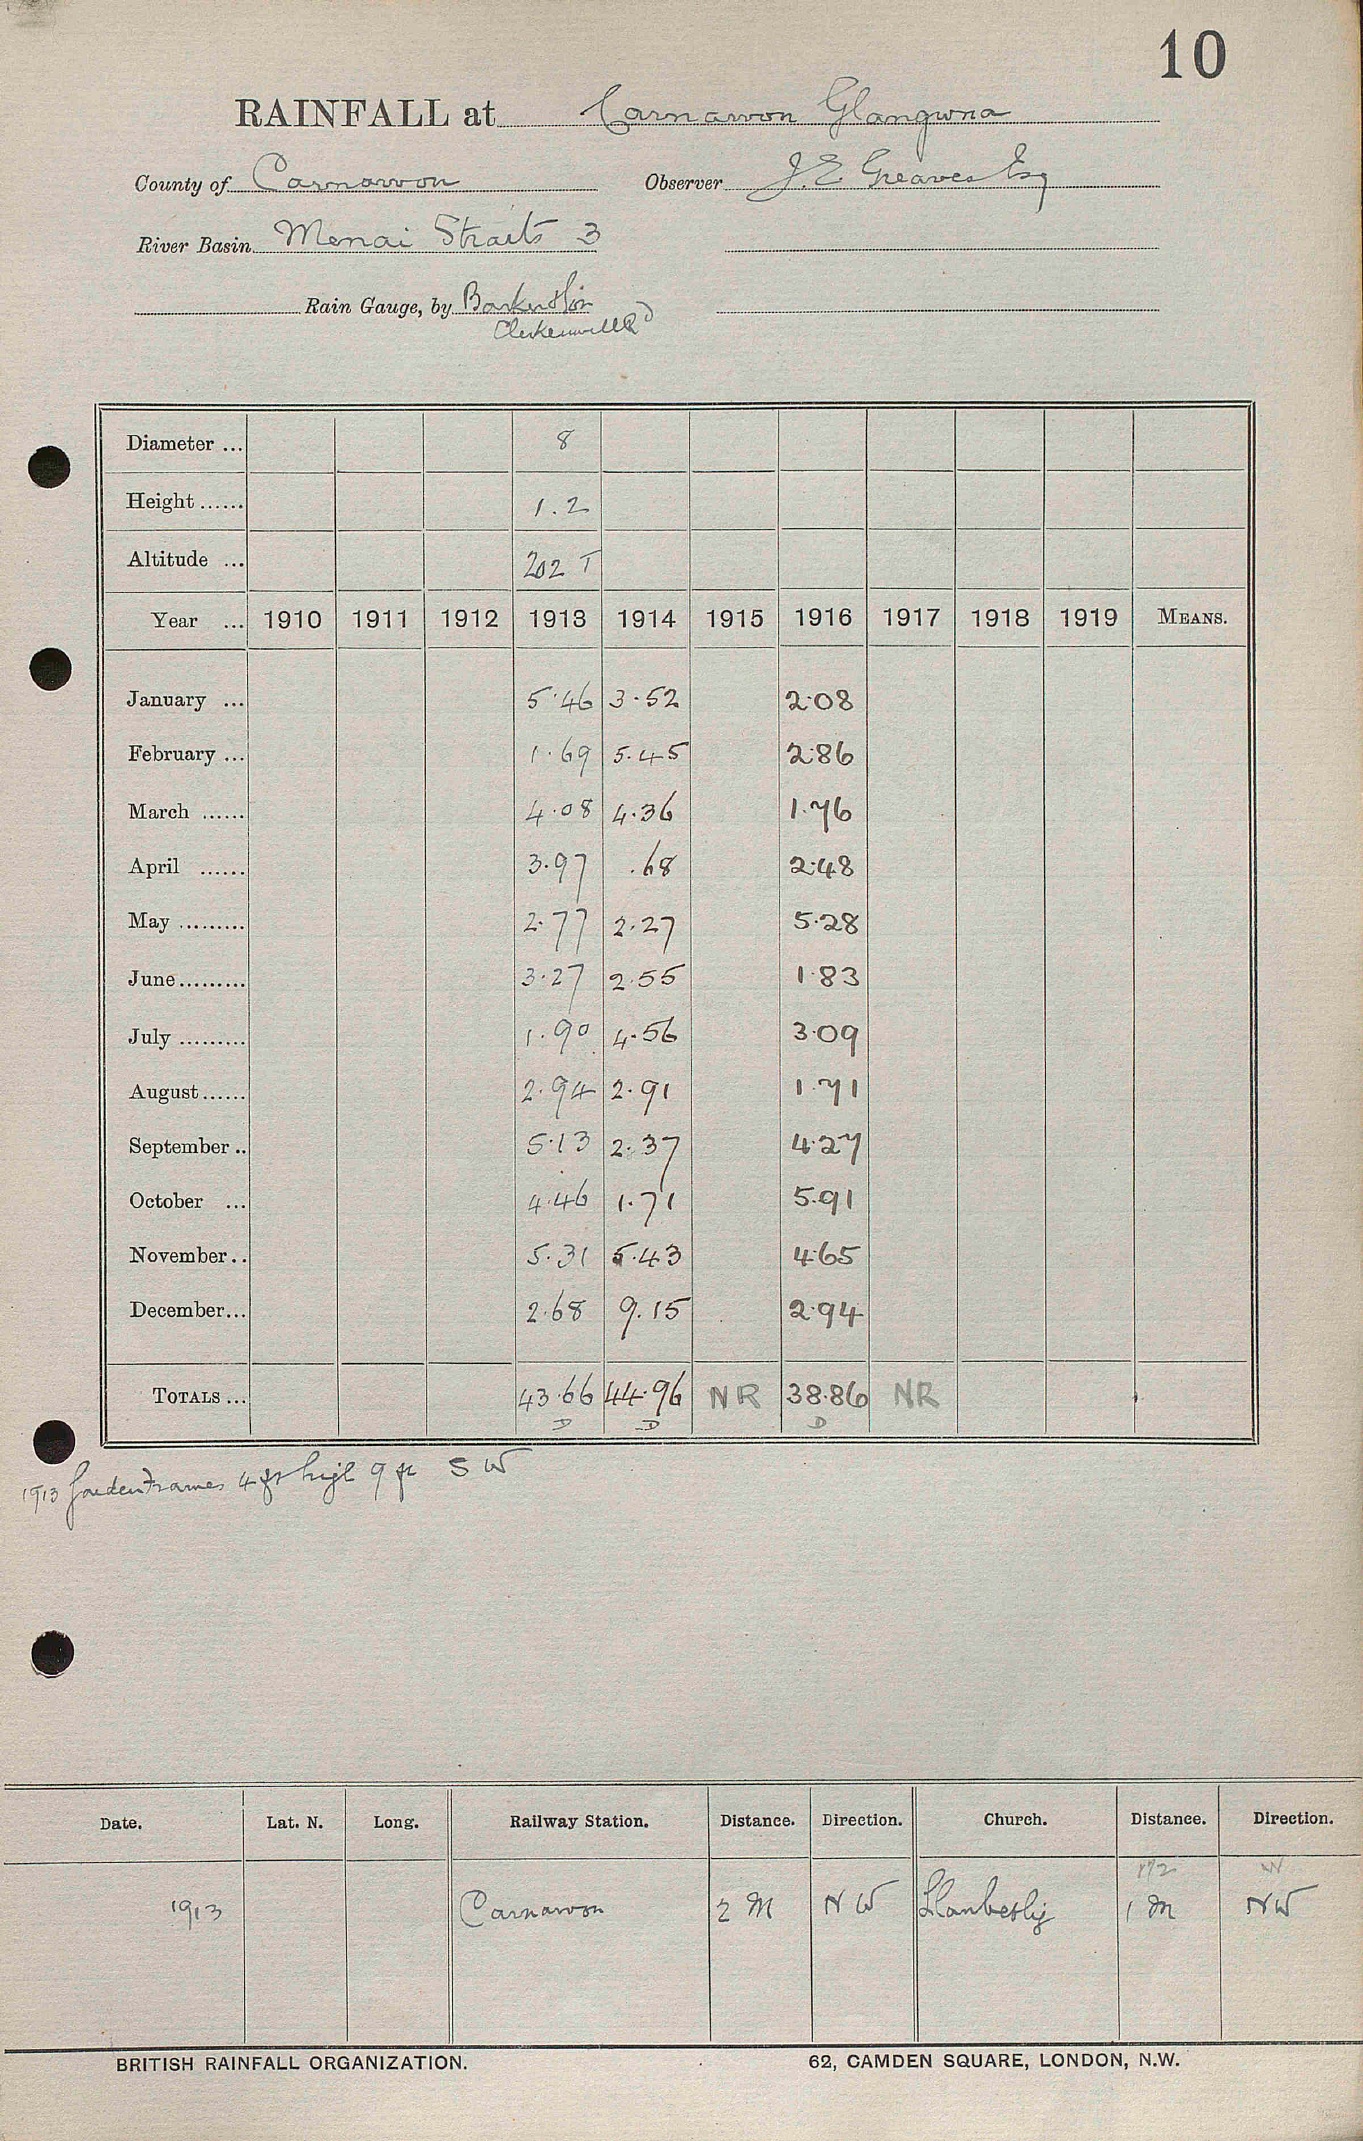 10
RAINFALL at Carnarvon Glangwna
County of Carnarvon Observer J. E. Greaves Esq
River Basin Menai Straits 3
Rain Gauge, by Barker & Son
Clerkenwell Rd
Diameter ... 8
Height ...... 1.2
Altitude ... 202 T
Year ... 1910 1911 1912 1913 1914 1915 1916 1917 1918 1919 MEANS.
January ... 5.46 3.52 2.08
February ... 1.69 5.45 2.86
March ...... 4.08 4.36 1.76
April ...... 3.97 .68 2.48
May ......... 2.77 2.27 5.28
June ......... 3.27 2.55 1.83
July ......... 1.90 4.56 3.09
August ...... 2.94 2.91 1.71
September .. 5.13 2.37 4.27
October ... 4.46 1.71 5.91
November .. 5.31 5.43 4.65
December ... 2.68 9.15 2.94
TOTALS ... 43.66 44.96 NR 38.86 NR
D D D
1913 Garden Frames 4 ft high 9 ft SW
Date. Lat. N. Long. Railway Station. Distance. Direction. Church. Distance. Direction.
1 1/2 W
1913 Carnarvon 2 M NW Llanbeblig 1 M NW
BRITISH RAINFALL ORGANIZATION. 62, CAMDEN SQUARE, LONDON, N.W.